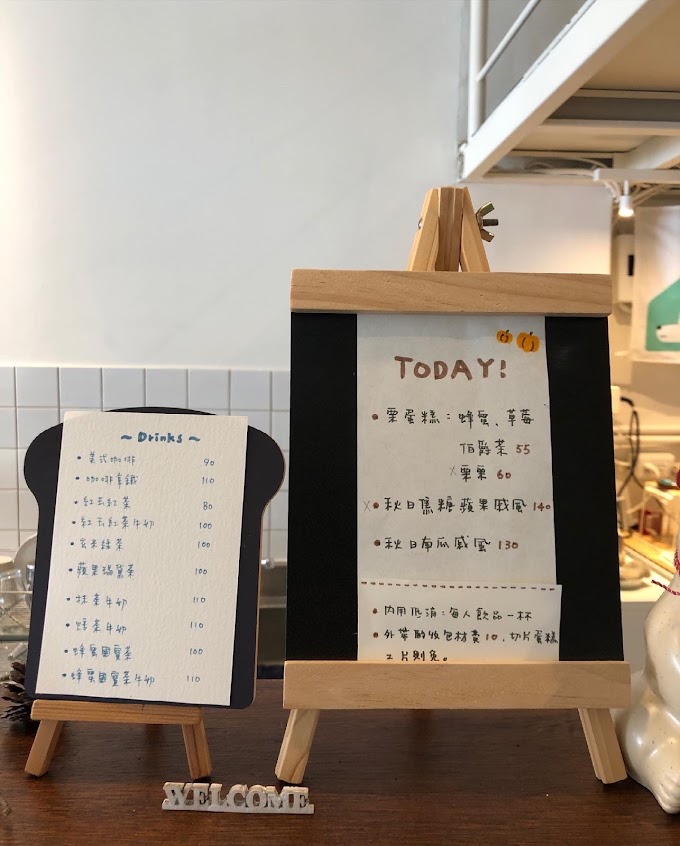 ~ Drinks ~
• 美式咖啡 90
• 咖啡拿鐵 110
• 紅玉紅茶 80
• 紅玉紅茶牛奶 100
• 玄米綠茶 100
• 蘋果瑪黛茶 100
• 抹茶牛奶 110
• 焙茶牛奶 110
• 蜂蜜國寶茶 100
• 蜂蜜國寶茶牛奶 110
TODAY!
• 栗蛋糕：蜂蜜、草莓
伯爵茶 55
×栗栗 60
×• 秋日焦糖蘋果戚風 140
• 秋日南瓜戚風 130
• 內用低消：每人飲品一杯
• 外帶酌收包材費10，切片蛋糕
2片則免。
WELCOME